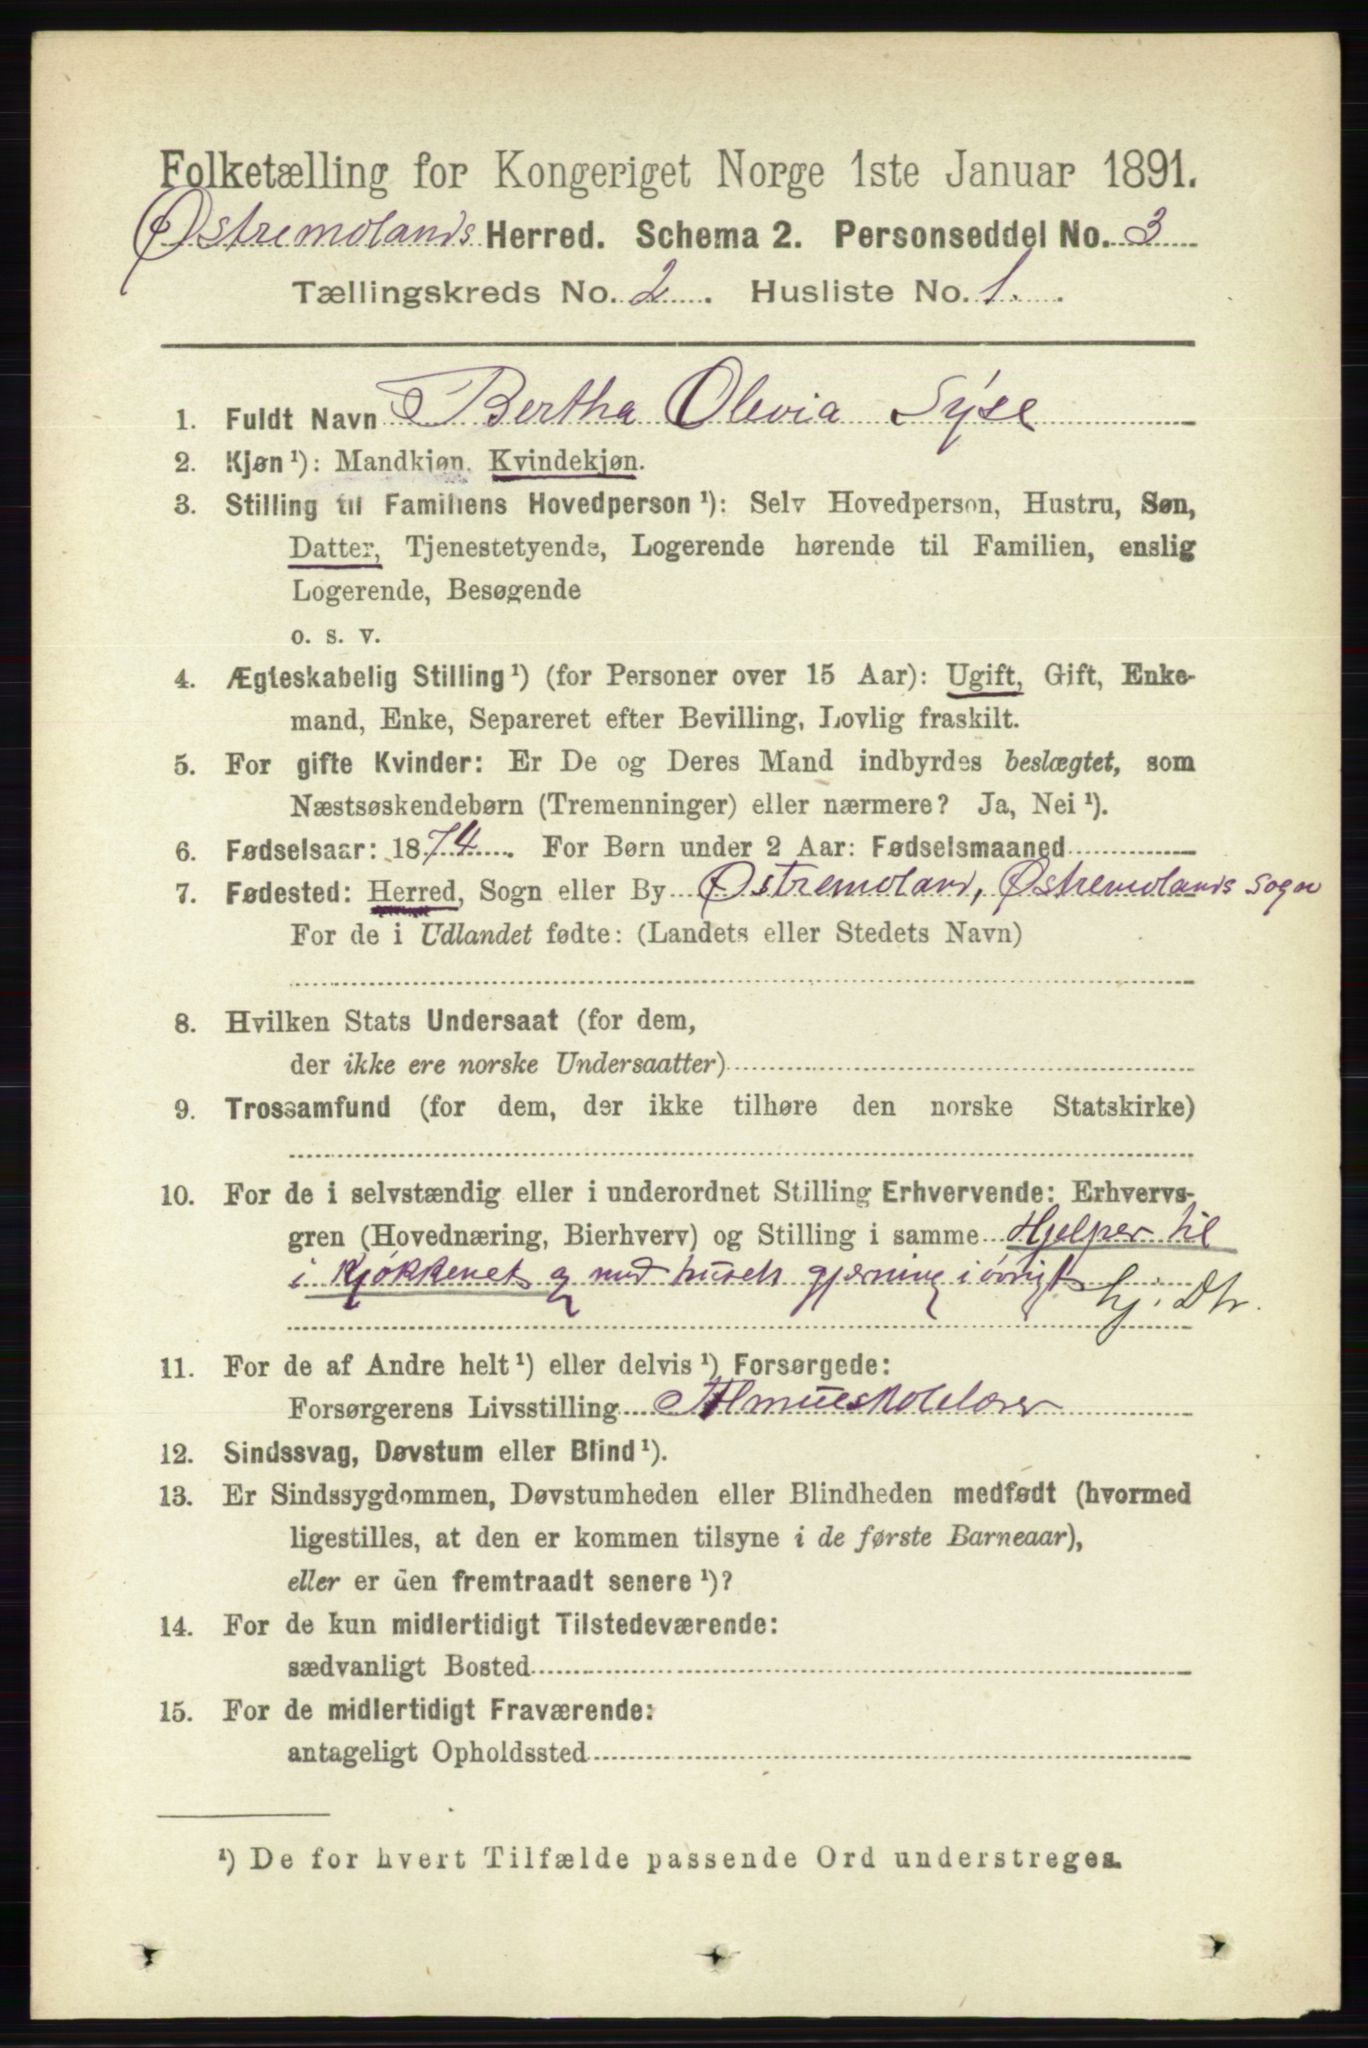 Folketælling for Kongeriget Norge 1ste Januar 1891.
Østremolands Herred. Schema 2. Personseddel No. 3
Tællingskreds No. 2. Husliste No. 1.
1. Fuldt Navn Bertha Olevia Sýse
2. Kjøn ¹): Mandkjøn, Kvindekjøn.
3. Stilling til Familiens Hovedperson ¹): Selv Hovedperson, Hustru, Søn,
Datter, Tjenestetyende, Logerende hørende til Familien, enslig
Logerende, Besøgende
o. s. v.
4. Ægteskabelig Stilling ¹) (for Personer over 15 Aar): Ugift, Gift, Enke-
mand, Enke, Separeret efter Bevilling, Lovlig fraskilt.
5. For gifte Kvinder: Er De og Deres Mand indbyrdes beslægtet, som
Næstsøskendebørn (Tremenninger) eller nærmere? Ja, Nei ¹).
6. Fødselsaar: 1874. For Børn under 2 Aar: Fødselsmaaned
7. Fødested: Herred, Sogn eller By Østremoland, Østremolands Sogn
For de i Udlandet fødte: (Landets eller Stedets Navn)
8. Hvilken Stats Undersaat (for dem,
der ikke ere norske Undersaatter)
9. Trossamfund (for dem, der ikke tilhøre den norske Statskirke)
10. For de i selvstændig eller i underordnet Stilling Erhvervende: Erhvervs-
gren (Hovednæring, Bierhverv) og Stilling i samme Hjelper til
i Kjøkkenet og med husets gjærning i øvrigt hj. Dtr.
11. For de af Andre helt ¹) eller delvis ¹) Forsørgede:
Forsørgerens Livsstilling Almueskolelærer
12. Sindssvag, Døvstum eller Blind ¹).
13. Er Sindssygdommen, Døvstumheden eller Blindheden medfødt (hvormed
ligestilles, at den er kommen tilsyne i de første Barneaar),
eller er den fremtraadt senere ¹)?
14. For de kun midlertidigt Tilstedeværende:
sædvanligt Bosted
15. For de midlertidigt Fraværende:
antageligt Opholdssted
¹) De for hvert Tilfælde passende Ord understreges.